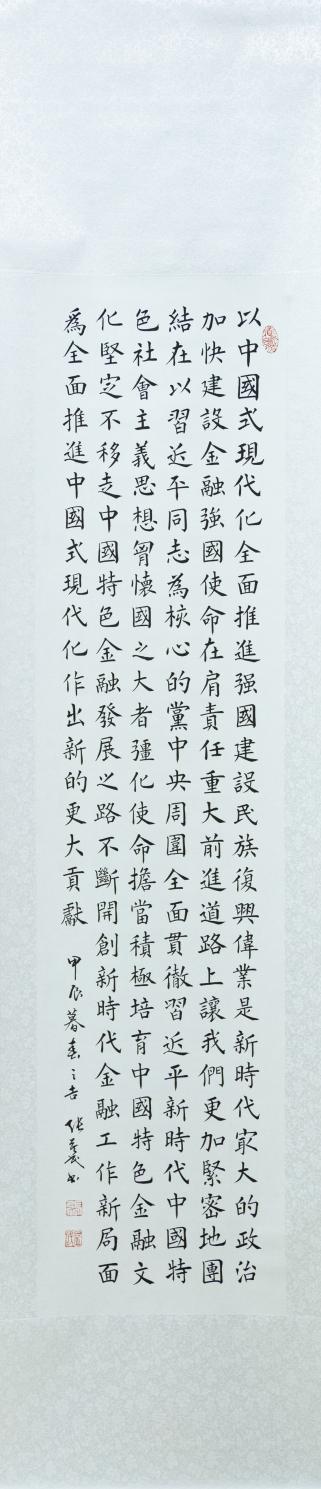 以中國式現代化全面推進强國建設民族復興偉業是新時代㝡大的政治
加快建設金融強國使命在肩責任重大前進道路上讓我們更加緊密地團
結在以習近平同志為核心的黨中央周圍全面貫徹習近平新時代中國特
色社會主義思想胷懷國之大者彊化使命擔當積極培育中國特色金融文
化堅定不移走中國特色金融發展之路不斷開創新時代金融工作新局面
爲全面推進中國式現代化作出新的更大貢獻
甲辰暮春之吉